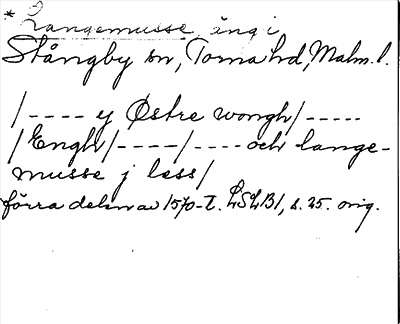 * Langemusse äng i
Stångby sn, Torna hd, Malm. l.
/---- ej Østre wongh/-----
/Engh/----/----och lange-
musse j less/
förra delen av 1570-t. LSLB1, s. 25. orig.